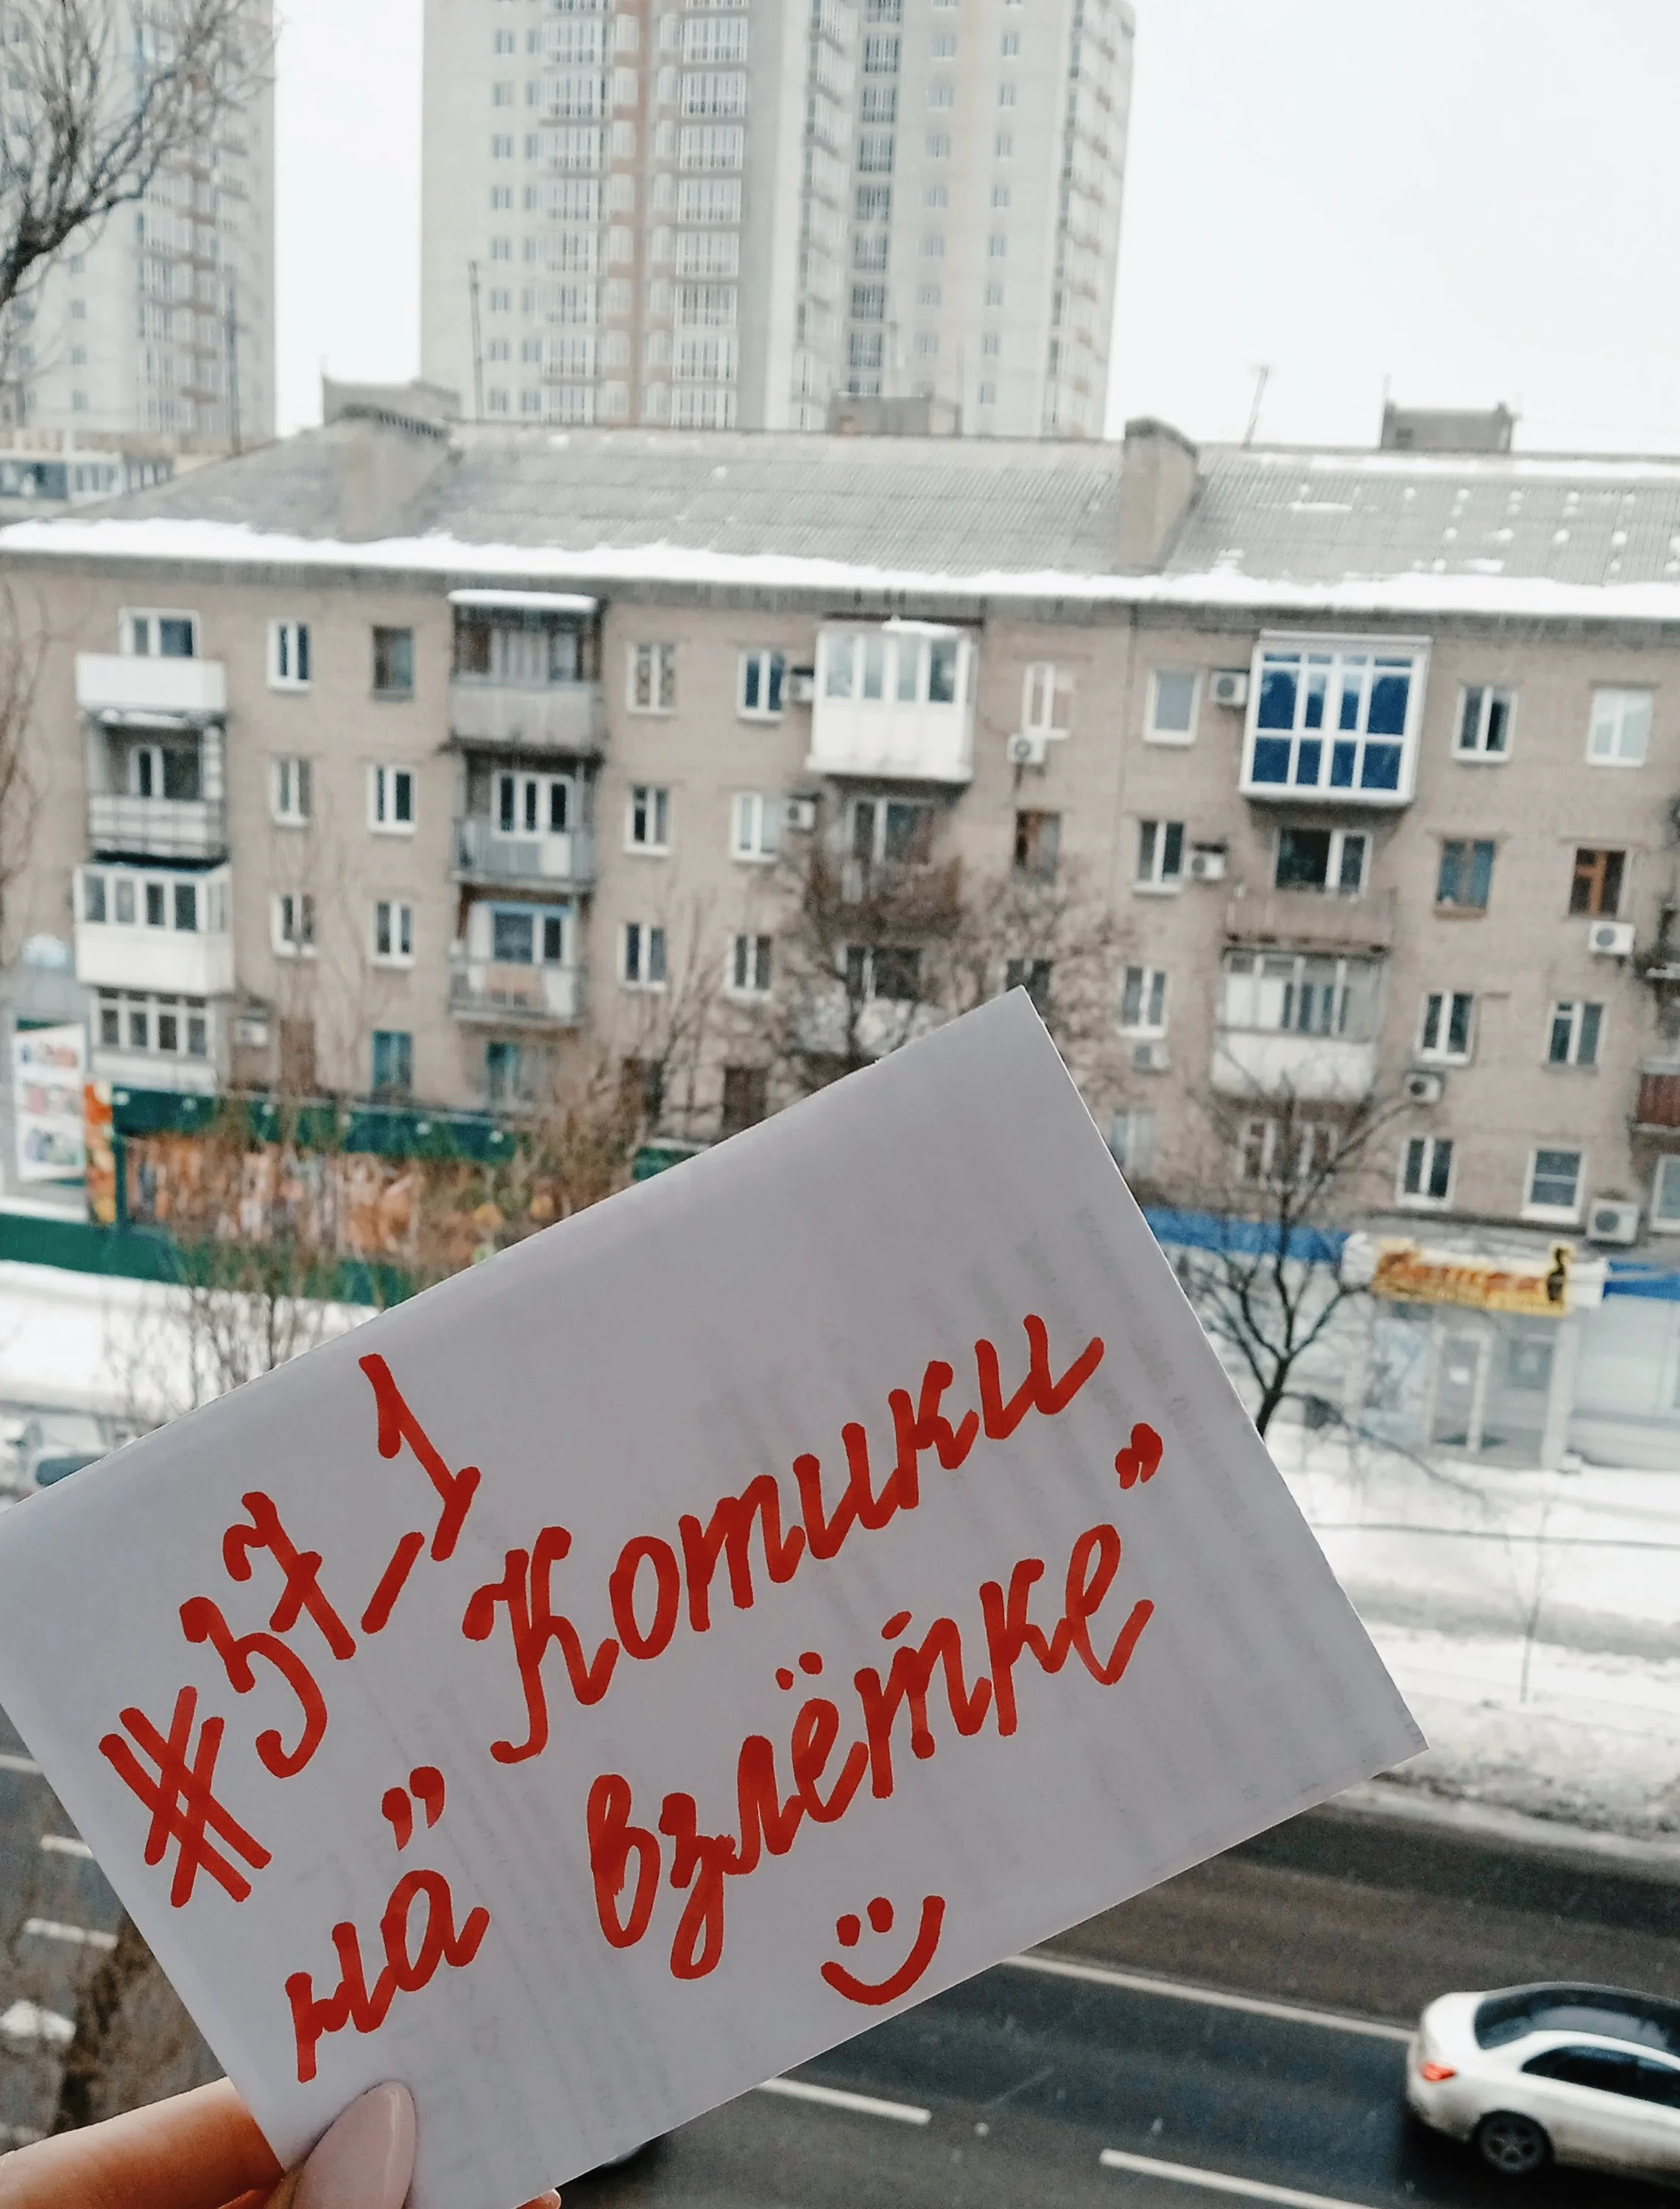 #37_1
„Котики
на взлётке”